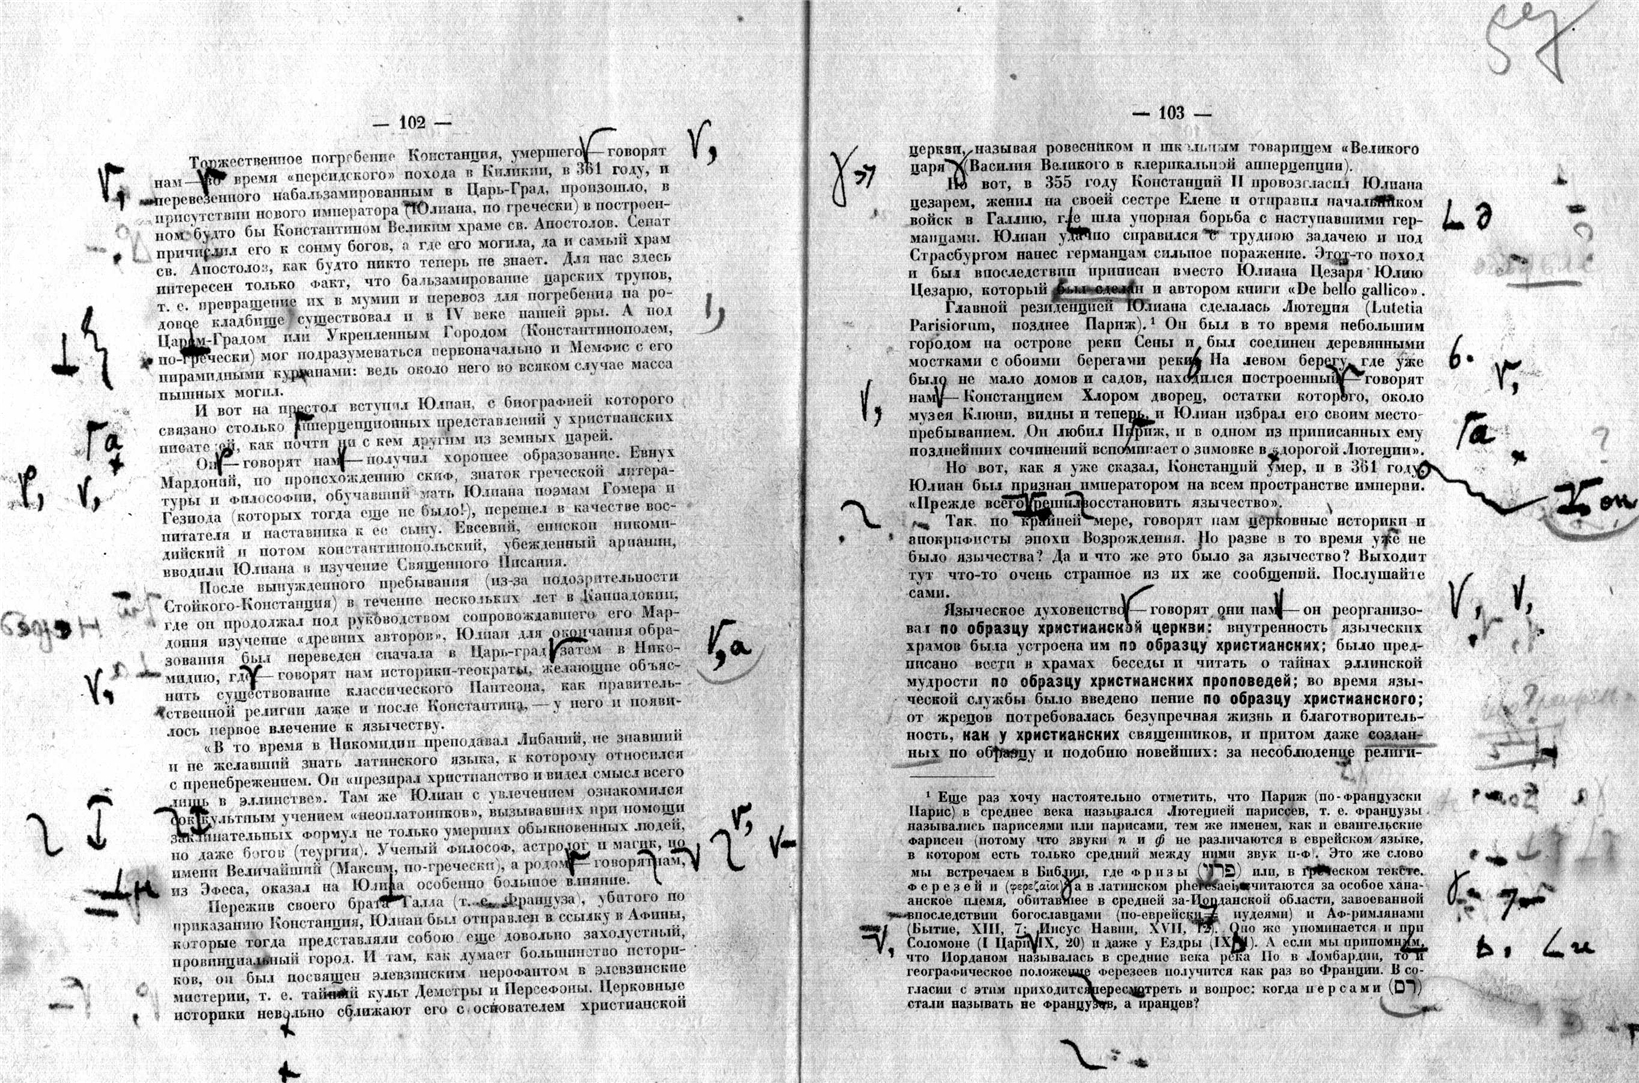 57
— 102 —
Торжественное погребение Констанция, умершего — говорят
нам — во время «персидского» похода в Киликии, в 361 году, и
перевезенного набальзамированным в Царь-Град, произошло, в
присутствии нового императора (Юлиана, по гречески) в построен-
ном будто бы Константином Великим храме св. Апостолов. Сенат
причислил его к сонму богов, а где его могила, да и самый храм
св. Апостолов, как будто никто теперь не знает. Для нас здесь
интересен только факт, что бальзамирование царских трупов,
т. е. превращение их в мумии и перевоз для погребения на ро-
довое кладбище существовал и в IV веке нашей эры. А под
Царем-Градом или Укрепленным Городом (Константинополем,
по-гречески) мог подразумеваться первоначально и Мемфис с его
пирамидными курганами: ведь около него во всяком случае масса
пышных могил.
И вот на престол вступил Юлиан, с биографией которого
связано столько апперцепционных представлений у христианских
писателей, как почти ни с кем другим из земных царей.
Он — говорят нам — получил хорошее образование. Евнух
Мардоний, по происхождению скиф, знаток греческой литера-
туры и философии, обучавший мать Юлиана поэмам Гомера и
Гезиода (которых тогда еще не было!), перешел в качестве вос-
питателя и наставника к ее сыну. Евсевий, епископ никоми-
дийский и потом константинопольский, убежденный арианин,
вводили Юлиана в изучение Священного Писания.
После вынужденного пребывания (из-за подозрительности
Стойкого-Констанция) в течение нескольких лет в Каппадокии,
где он продолжал под руководством сопровождавшего его Мар-
дония изучение «древних авторов», Юлиан для окончания обра-
зования был переведен сначала в Царь-град затем в Нико-
мидию, где — говорят нам историки-теократы, желающие объяс-
нить существование классического Пантеона, как правитель-
ственной религии даже и после Константина, — у него и появи-
лось первое влечение к язычеству.
«В то время в Никомидии преподавал Либаний, не знавший
и не желавший знать латинского языка, к которому относился
с пренебрежением. Он «презирал христианство и видел смысл всего
лишь в эллинстве». Там же Юлиан с увлечением ознакомился
с оккультным учением «неоплатоников», вызывавших при помощи
заклинательных формул не только умерших обыкновенных людей,
но даже богов (теургия). Ученый философ, астролог и магик, по
имени Величайший (Максим, по-гречески), а родом — говорят нам,
из Эфеса, оказал на Юлиана особенно большое влияние.
Пережив своего брата Галла (т. е. Француза), убитого по
приказанию Констанция, Юлиан был отправлен в ссылку в Афины,
которые тогда представляли собою еще довольно захолустный,
провинциальный город. И там, как думает большинство истори-
ков, он был посвящен элевзинским иерофантом в элевзинские
мистерии, т. е. тайный культ Деметры и Персефоны. Церковные
историки невольно сближают его с основателем христианской
— 103 —
церкви, называя ровесником и школьным товарищем «Великого
царя (Василия Великого в клерикальной апперцепции).
Но вот, в 355 году Констанций II провозгласил Юлиана
цезарем, женил на своей сестре Елене и отправил начальником
войск в Галлию, где шла упорная борьба с наступавшими гер-
манцами. Юлиан удачно справился с трудною задачею и под
Страсбургом нанес германцам сильное поражение. Этот-то поход
и был впоследствии приписан вместо Юлиана Цезаря Юлию
Цезарю, который был сделан и автором книги «De bello gallico».
Главной резиденцией Юлиана сделалась Лютеция (Lutetia
Parisiorum, позднее Париж).¹ Он был в то время небольшим
городом на острове реки Сены и был соединен деревянными
мостками с обоими берегами реки. На левом берегу, где уже
было не мало домов и садов, находился построенный — говорят
нам — Констанцием Хлором дворец, остатки которого, около
музея Клюни, видны и теперь, и Юлиан избрал его своим место-
пребыванием. Он любил Париж, и в одном из приписанных ему
позднейших сочинений вспоминает о зимовке в «дорогой Лютеции».
Но вот, как я уже сказал, Констанций умер, и в 361 году
Юлиан был признан императором на всем пространстве империи.
«Прежде всего решил восстановить язычество».
Так. по крайней мере, говорят нам церковные историки и
апокрифисты эпохи Возрождения. Но разве в то время уже не
было язычества? Да и что же это было за язычество? Выходит
тут что-то очень странное из их же сообщений. Послушайте
сами.
Языческое духовенство — говорят они нам — он реорганизо-
вал по образцу христианской церкви: внутренность языческих
храмов была устроена им по образцу христианских; было пред-
писано вести в храмах беседы и читать о тайнах эллинской
мудрости по образцу христианских проповедей; во время язы-
ческой службы было введено пение по образцу христианского;
от жрецов потребовалась безупречная жизнь и благотворитель-
ность, как у христианских священников, и притом даже создан-
ных по образцу и подобию новейших: за несоблюдение религи-
¹ Еще раз хочу настоятельно отметить, что Париж (по-французски
Парис) в среднее века назывался Лютецией париссев, т. е. французы
назывались парисеями или парисами, тем же именем, как и евангельские
фарисеи (потому что звуки п и ф не различаются в еврейском языке,
в котором есть только средний между ними звук п-ф. Это же слово
мы встречаем в Библии, где фризы (פרזי) или, в греческом тексте.
Ферезеи (φερεζαῖος) а в латинском pheresaei, считаются за особое хана-
анское племя, обитавшее в средней за-Иорданской области, завоеванной
впоследствии богославцами (по-еврейски иудеями) и Аф-римлянами
(Бытие, XIII, 7; Иисус Навин, XVII, 15). Оно же упоминается и при
Соломоне (I Цари IX, 20) и даже у Ездры (IX, 1). А если мы припомним,
что Иорданом называлась в средние века река По в Ломбардии, то и
географическое положение ферезеев получится как раз во Франции. В со-
гласии с этим приходится пересмотреть и вопрос: когда персами (רם)
стали называть не французов, а иранцев?